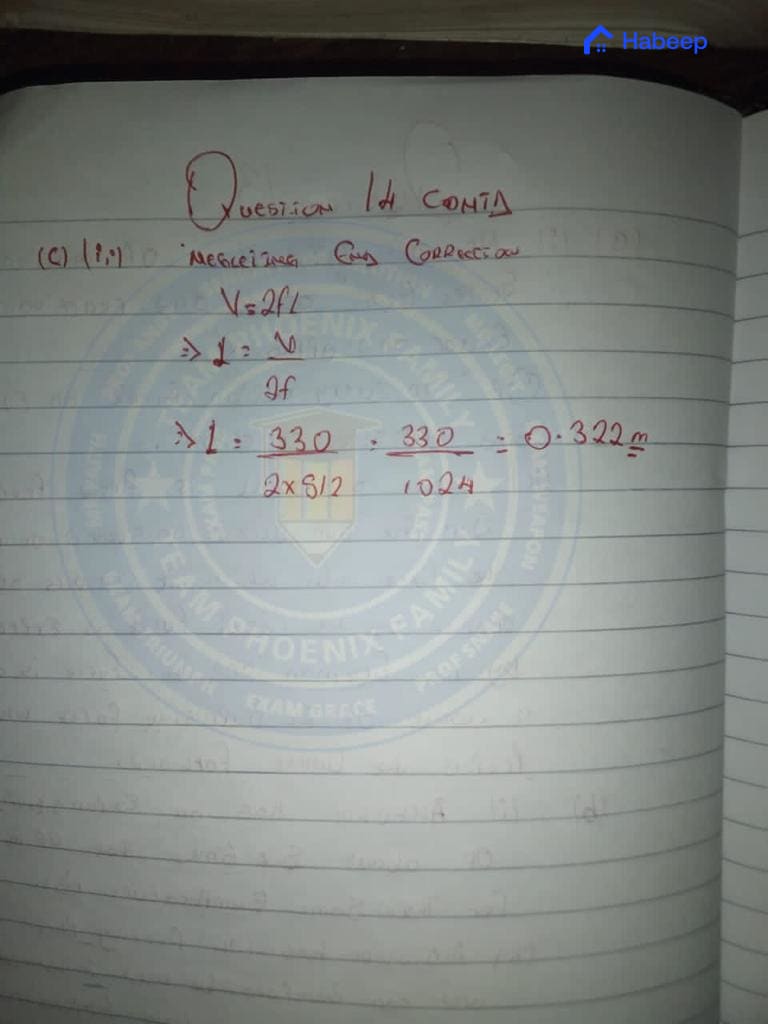 Habeep
QUESTION 14 CONTD
(C) (ii) NEGLECTING END CORRECTION
V = 2fl
⇒ l = V
2f
⇒ l = 330 = 330 = 0.322m
2×512 1024
TEAM PHOENIX FAMILY
TEAM PHOENIX FAMILY
EXAM GRACE